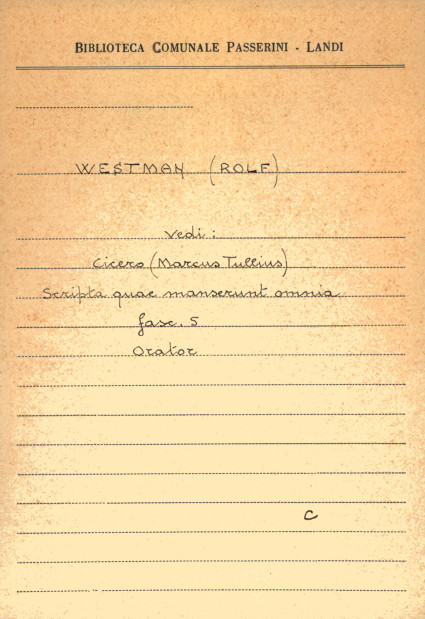 BIBLIOTECA COMUNALE PASSERINI - LANDI
WESTMAN (ROLF)
Vedi:
Cicero (Marcus Tullius)
Scripta quae manserunt omnia
fasc. 5
Orator
C